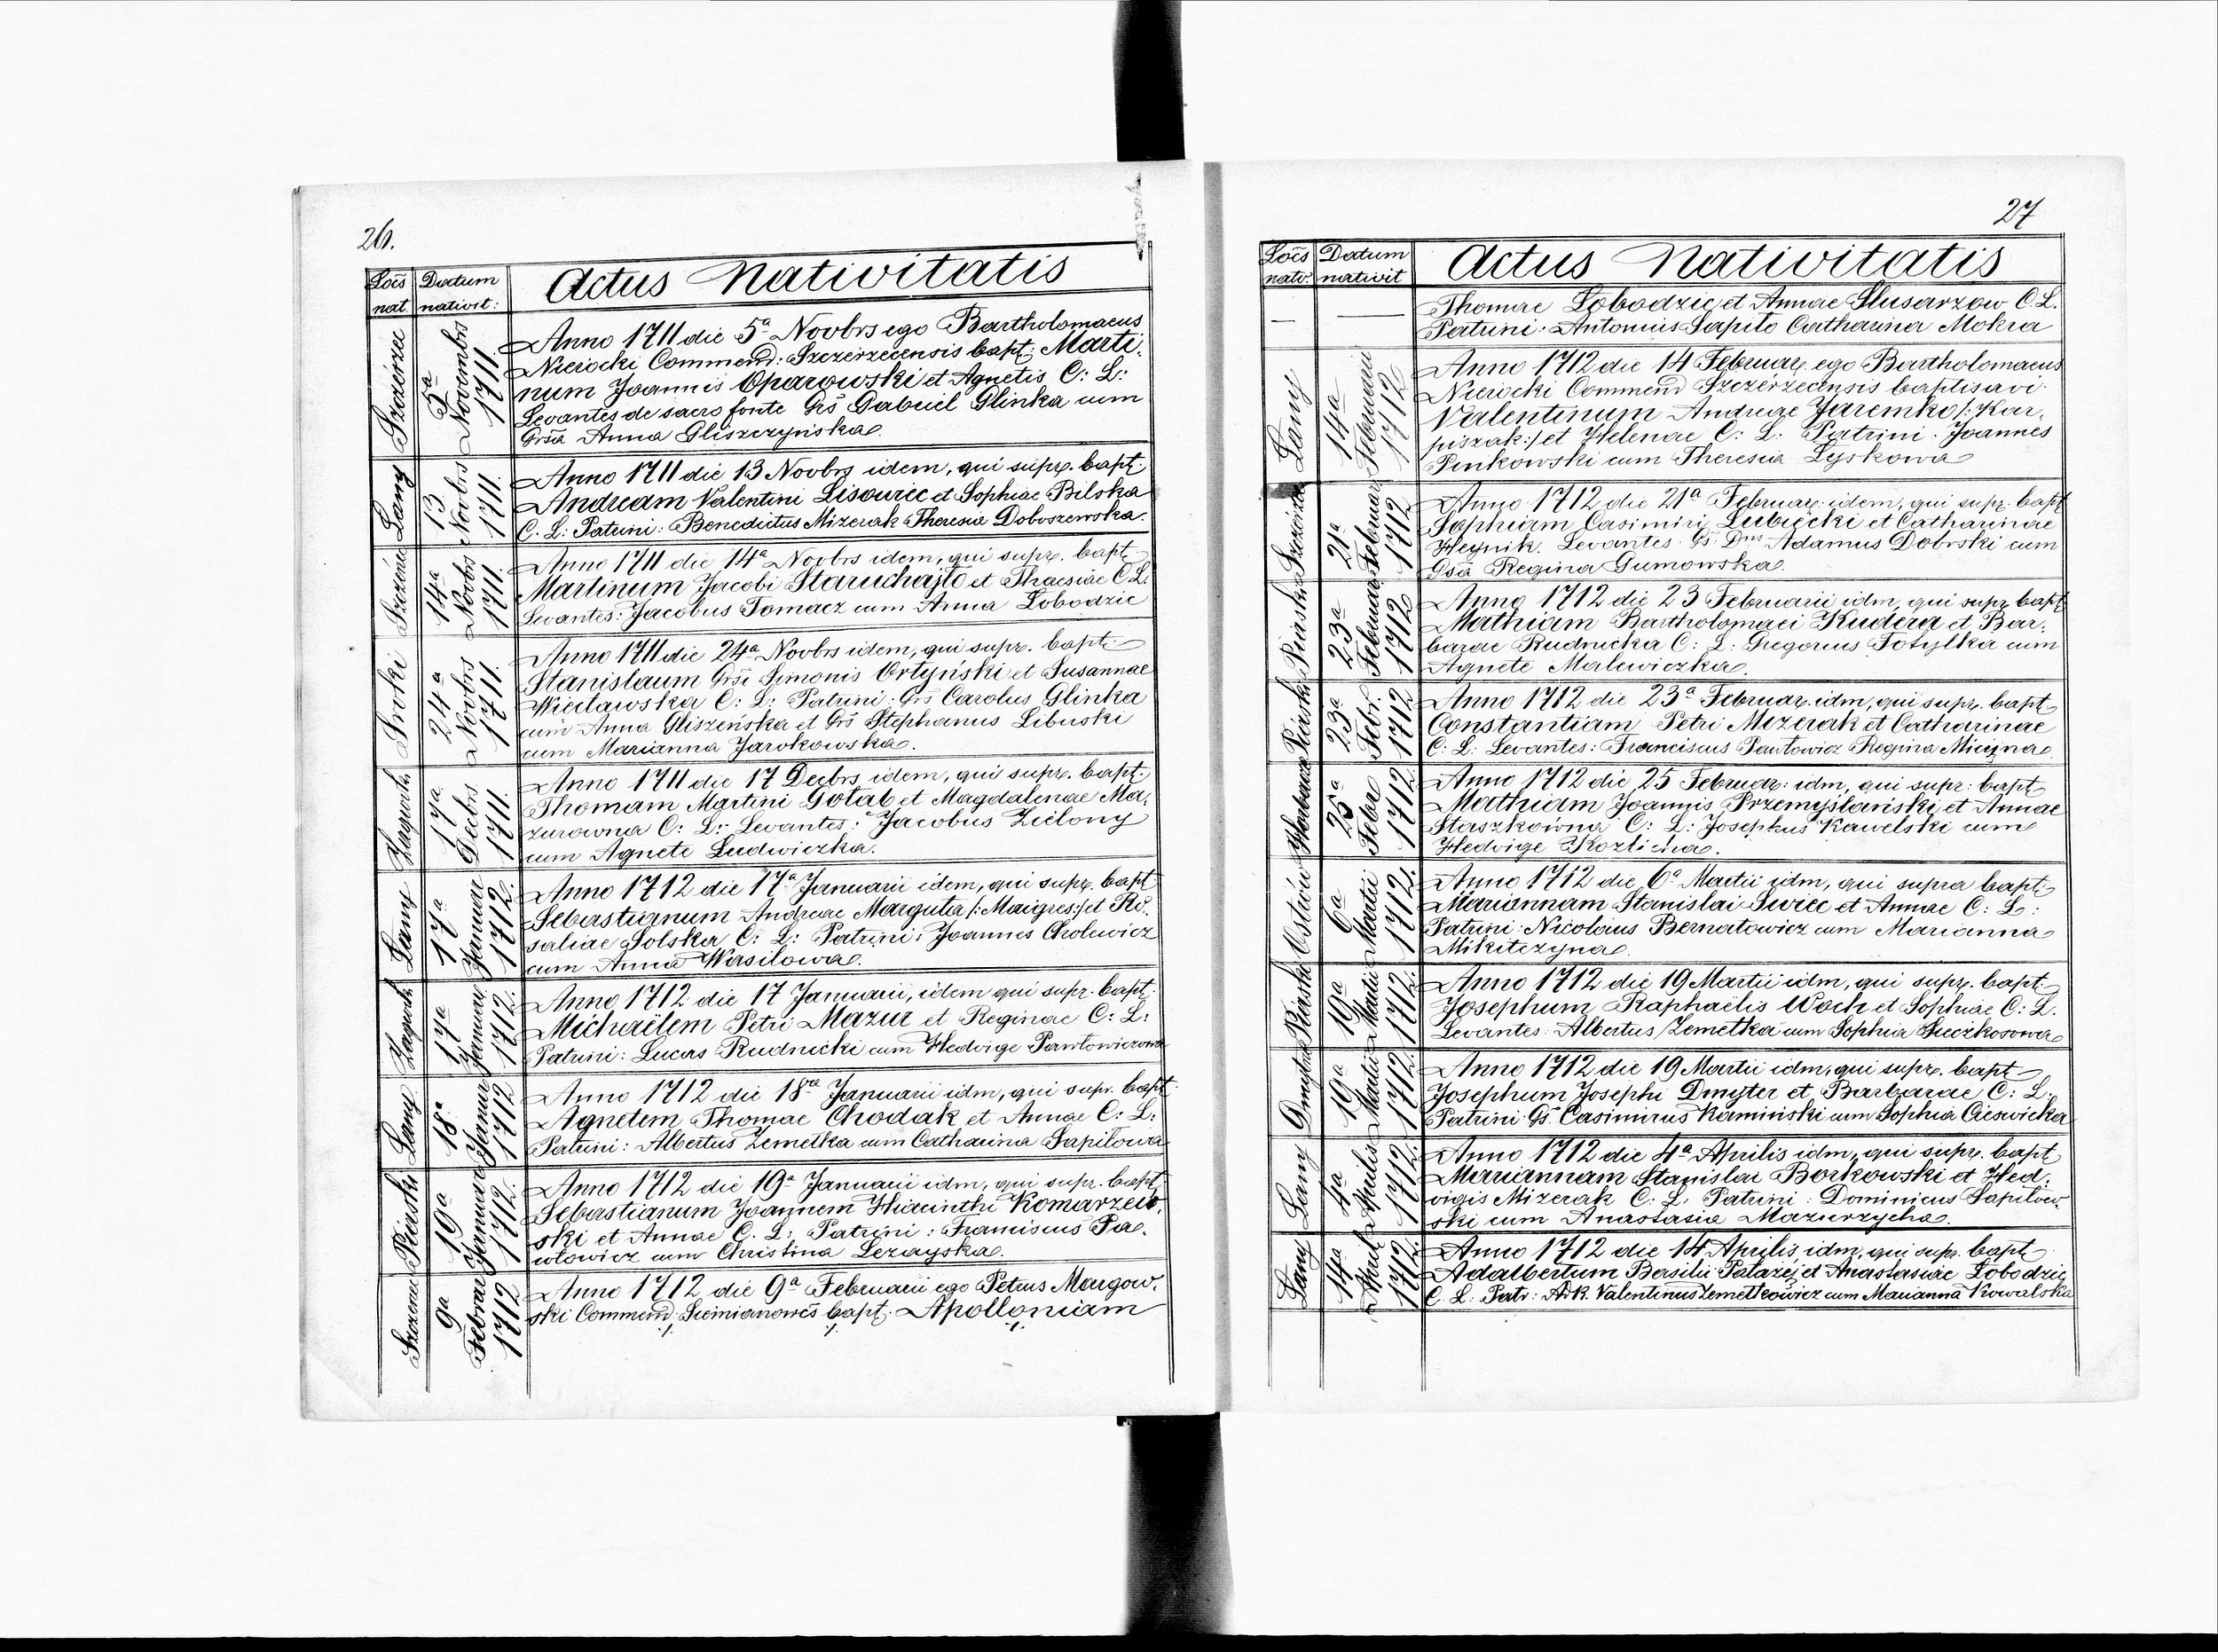 26.
Locs nat
Datum nativit:
Actus Nativitatis
Szczerzec
5a Novembrs 1711.
Anno 1711 die 5a Novbrs ego Bartholomaeus
Nierocki Commend: Szczerzecensis bapt: Marti,
num Joannis Oparowski et Agnetis C: L:
Levantes de sacro fonte Grs Gabriel Glinka cum
Grsa Anna Gliszczyńska.
Łany
13 Novbrs 1711.
Anno 1711 die 13 Novbrs idem, qui supr. bapt.
Andream Valentini Lisowiec et Sophiae Bilska
C. L: Patrini: Benedictus Mizerak Theresia Doboszewska.
14a Novbrs 1711.
Anno 1711 die 14a Novbrs idem, qui supr. bapt
Martinum Jacobi Staruchajło et Thaesiae C L.
Levantes: Jacobus Tomacz cum Anna Łobodzic
24a Novbrs 1711.
Anno 1711 die 24a Novbrs idem, qui supr. bapt:
Stanislaum Grsi Simonis Ortyński et Susannae
Wiecławska C: L: Patrini: Grs Carolus Glinka
cum Anna Gliszeńska et Grs Stephanus Libuski
cum Marianna Jarokowska.
17a Decbrs 1711.
Anno 1711 die 17 Decbrs idem, qui supr. bapt.
Thomam Martini Gołab et Magdalenae Ma,
zurowna C: L: Levantes: Jacobus Zielony
cum Agnete Ludwiczka.
Łany
17a Januar 1712.
Anno 1712 die 17a Januarii idem, qui supr. bapt
Sebastianum Andreae Marguta /:Maigres:/ et Ro,
saliae Solska C: L: Patrini: Joannes Cholewicz
cum Anna Wasilowa.
17a Januar. 1712.
Anno 1712 die 17 Januarii, idem qui supr. bapt.
Michaëlem Petri Mazur et Reginae C: L:
Patrini: Lucas Rudnicki cum Hedvige Pawłowiczowa
Łany
18a Januar 1712
Anno 1712 die 18va Januarii idm, qui supr. bapt
Agnetem Thomae Chodak et Annae C: L:
Patrini: Albertus Zemełka cum Catharina Sapiłowa
Piaski
19a Januar 1712.
Anno 1712 die 19a Januarii idm, qui supr. bapt
Sebastianum Joannem Hiacinthi Komarzew,
ski et Annae C. L: Patrini: Franciscus Pa,
włowicz cum Christina Leżayska.
9a Februar 1712
Anno 1712 die 9a Februarii ego Petrus Margow,
ski Commend. Siemianowcs bapt. Apolloniam
27
Locs natv:
Datum nativit
Actus Nativitatis
Thomae Łobodzic et Annae Slusarzow C L.
Patrini: Antonius Sapiło Catharina Mokra
Łany
14a Februarii 1712
Anno 1712 die 14 Februar. ego Bartholomaeus
Nierocki Commend Szczerzecensis baptisavi
Valentinum Andreae Jaremko /:Kar,
piszak:/ et Helenae C: L. Patrini: Joannes
Pinkowski cum Theresia Lyskowa
21a Februar 1712
Anno 1712 die 21a Februar: idem, qui supr. bapt
Sophiam Casimiri Lubiecki et Catharinae
Heynik. Levantes Gs. Dns Adamus Dobrski cum
Gsa Regina Gumowska.
Piaski
23a Februar 1712
Anno 1712 die 23 Februarii idm, qui supr bapt
Mathiam Bartholomaei Kudera et Bar,
barae Rudnicka C: L: Gregorius Fotyłka cum
Agnete Malewiczka.
Piaski
23a Febr. 1712
Anno 1712 die 23a Februar. idm, qui supr. bapt
Constantiam Petri Mizerak et Catharinae
C: L: Levantes: Franciscus Pawłowicz Regina
25a Febr 1712.
Anno 1712 die 25 Februar: idm, qui supr: bapt
Mathiam Joannis Przemyślański et Annae
Staszkowna C: L: Josephus Kawelski cum
Hedvige
Ostrów
6a Martii 1712.
Anno 1712 die 6a Martii idm, qui supra bapt
Mariannam Stanislai Swiec et Annae C: L:
Patrini: Nicolaus Bernatowicz cum Marianna
Mikitczyna.
Piaski
19a Martii 1712.
Anno 1712 die 19 Martii idm, qui supr. bapt.
Josephum Raphaëlis Woch et Sophiae C: L.
Levantes: Albertus Zemełka cum Sophia Sieczkosowa
19a Martii 1712.
Anno 1712 die 19 Martii idm, qui supr. bapt
Josephum Josephi Dmyter et Barbarae C: L.
Patrini Gs Casimirus Kamiński cum Sophia Cieswicka
Łany
4a Aprilis 1712.
Anno 1712 die 4a Aprilis idm, qui supr. bapt
Mariannam Stanislai Borkowski et Hed,
vigis Mizerak C: L. Patrini: Dominicus Sapiłow,
ski cum Anastasia Mazurzycha.
Łany
14a April 1712.
Anno 1712 die 14 Aprilis idm, qui supr. bapt
Adalbertum Basilii Pałazej et Anastasiae Łobodzic
C. L. Patr: A.R. Valentinus Zemełkowicz cum Marianna Kowalska